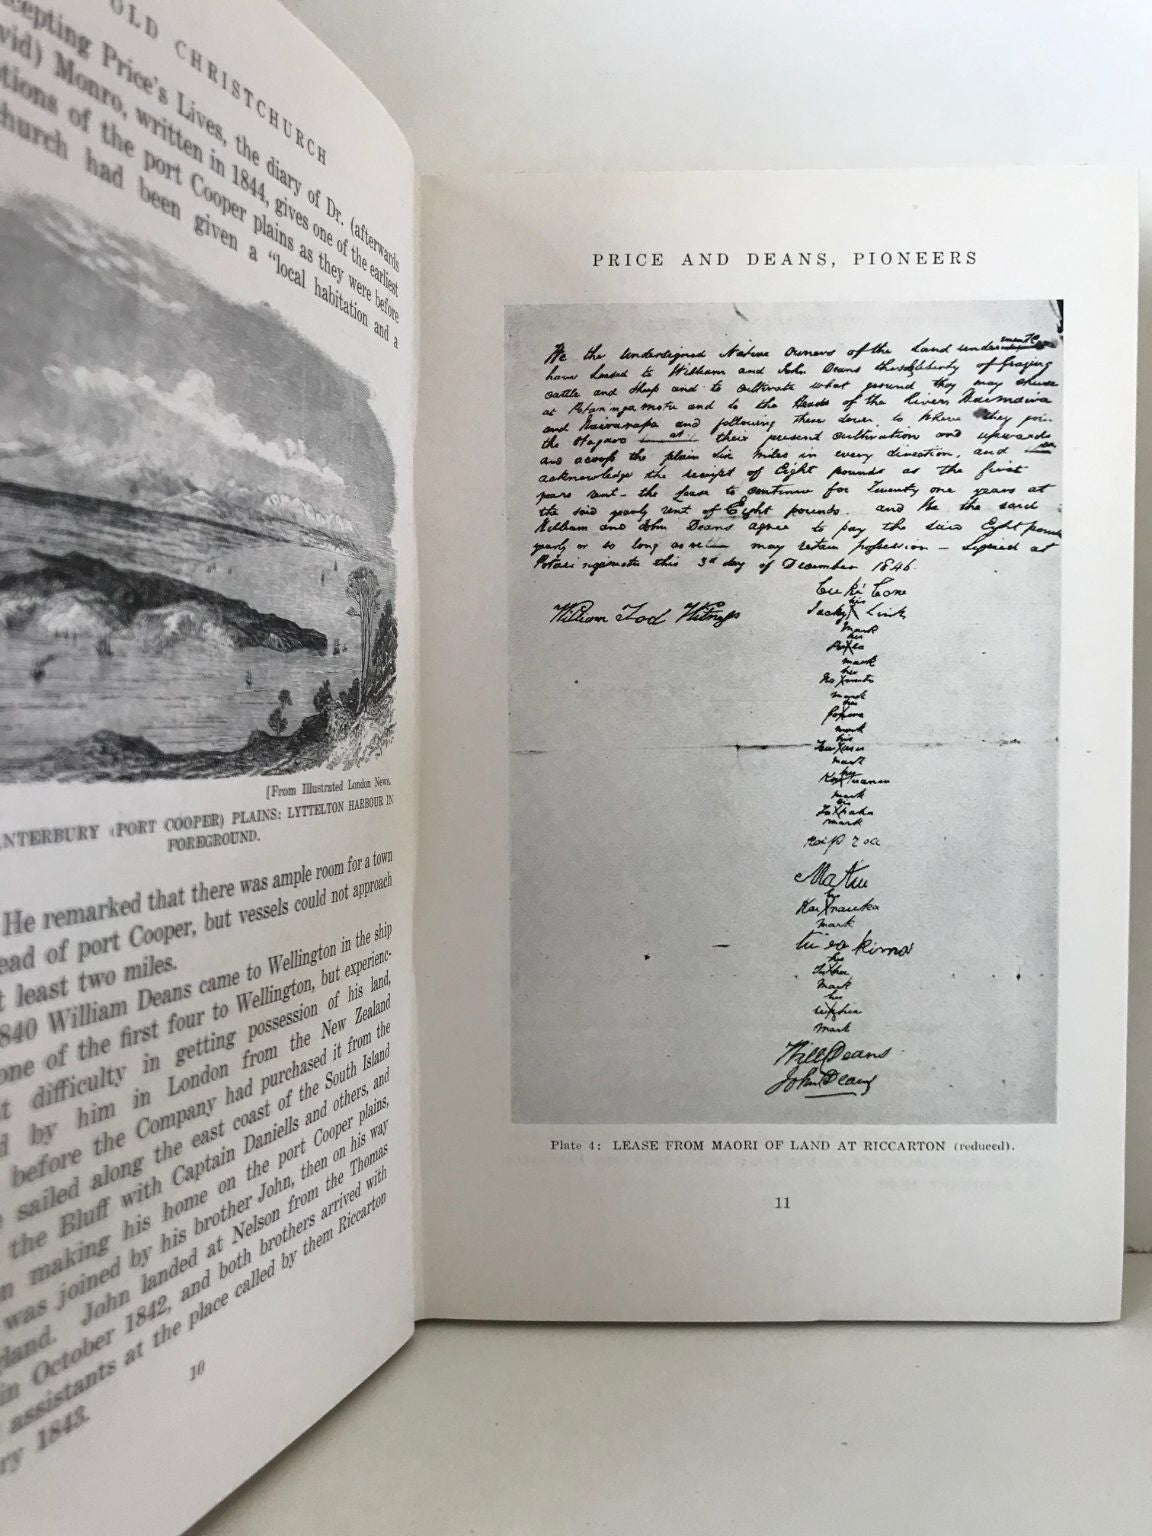 OLD CHRISTCHURCH
cepting Price's Lives, the diary of Dr. (afterwards
vid) Monro, written in 1844, gives one of the earliest
tions of the port Cooper plains as they were before
hurch had been given a "local habitation and a
[From Illustrated London News.
ANTERBURY (PORT COOPER) PLAINS: LYTTELTON HARBOUR IN
FOREGROUND.
He remarked that there was ample room for a town
ead of port Cooper, but vessels could not approach
t least two miles.
840 William Deans came to Wellington in the ship
one of the first four to Wellington, but experienc-
t difficulty in getting possession of his land,
d by him in London from the New Zealand
before the Company had purchased it from the
sailed along the east coast of the South Island
the Bluff with Captain Daniells and others, and
n making his home on the port Cooper plains,
was joined by his brother John, then on his way
land. John landed at Nelson from the Thomas
in October 1842, and both brothers arrived with
assistants at the place called by them Riccarton
ry 1843.
10
PRICE AND DEANS, PIONEERS
We the undersigned Native Owners of the Land
have leased to William and John Deans the liberty of grazing
cattle and sheep and to cultivate what ground they may choose
at and to the Heads of the Rivers
and and following these down to where they join
the their present cultivation and upwards
and across the plain six miles in every direction, and
acknowledge the receipt of Eight pounds as the first
years rent - the lease to continue for Twenty one years at
the said yearly rent of Eight pounds. and We the said
William and John Deans agree to pay the said Eight pounds
yearly or so long as may retain possession - Signed at
this 3d day of December 1846.
William Tod Witness
his
Jacky X
mark
his
mark
his
mark
his
mark
his
mark
his
mark
his
mark
Matiu
his
mark
his
mark
his
mark
Will Deans
John Deans
Plate 4: LEASE FROM MAORI OF LAND AT RICCARTON (reduced).
11